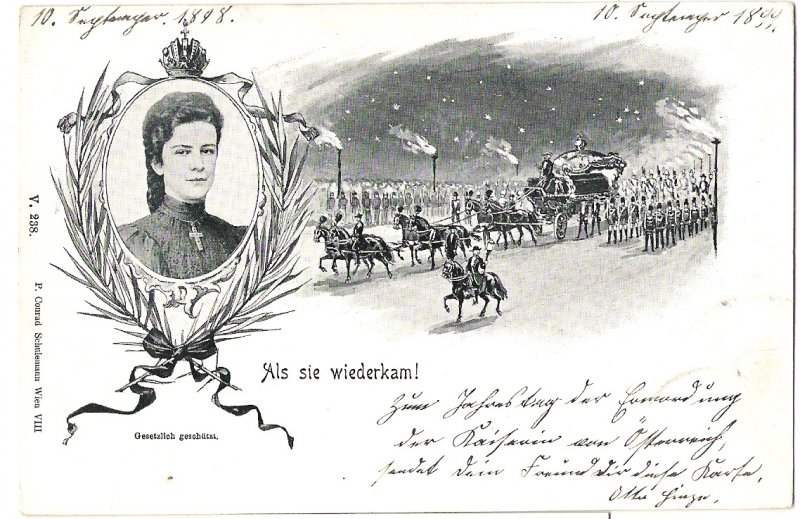 10. September. 1898.
10. September 1899.
V. 238.
P. Conrad Schulemann Wien VIII
Als sie wiederkam!
Gesetzlich geschützt.
Zum Jahrestag der Ermordung
der Kaiserin von Österreich,
sendet Dein Freund dir diese Karte.
Otto Hinze.